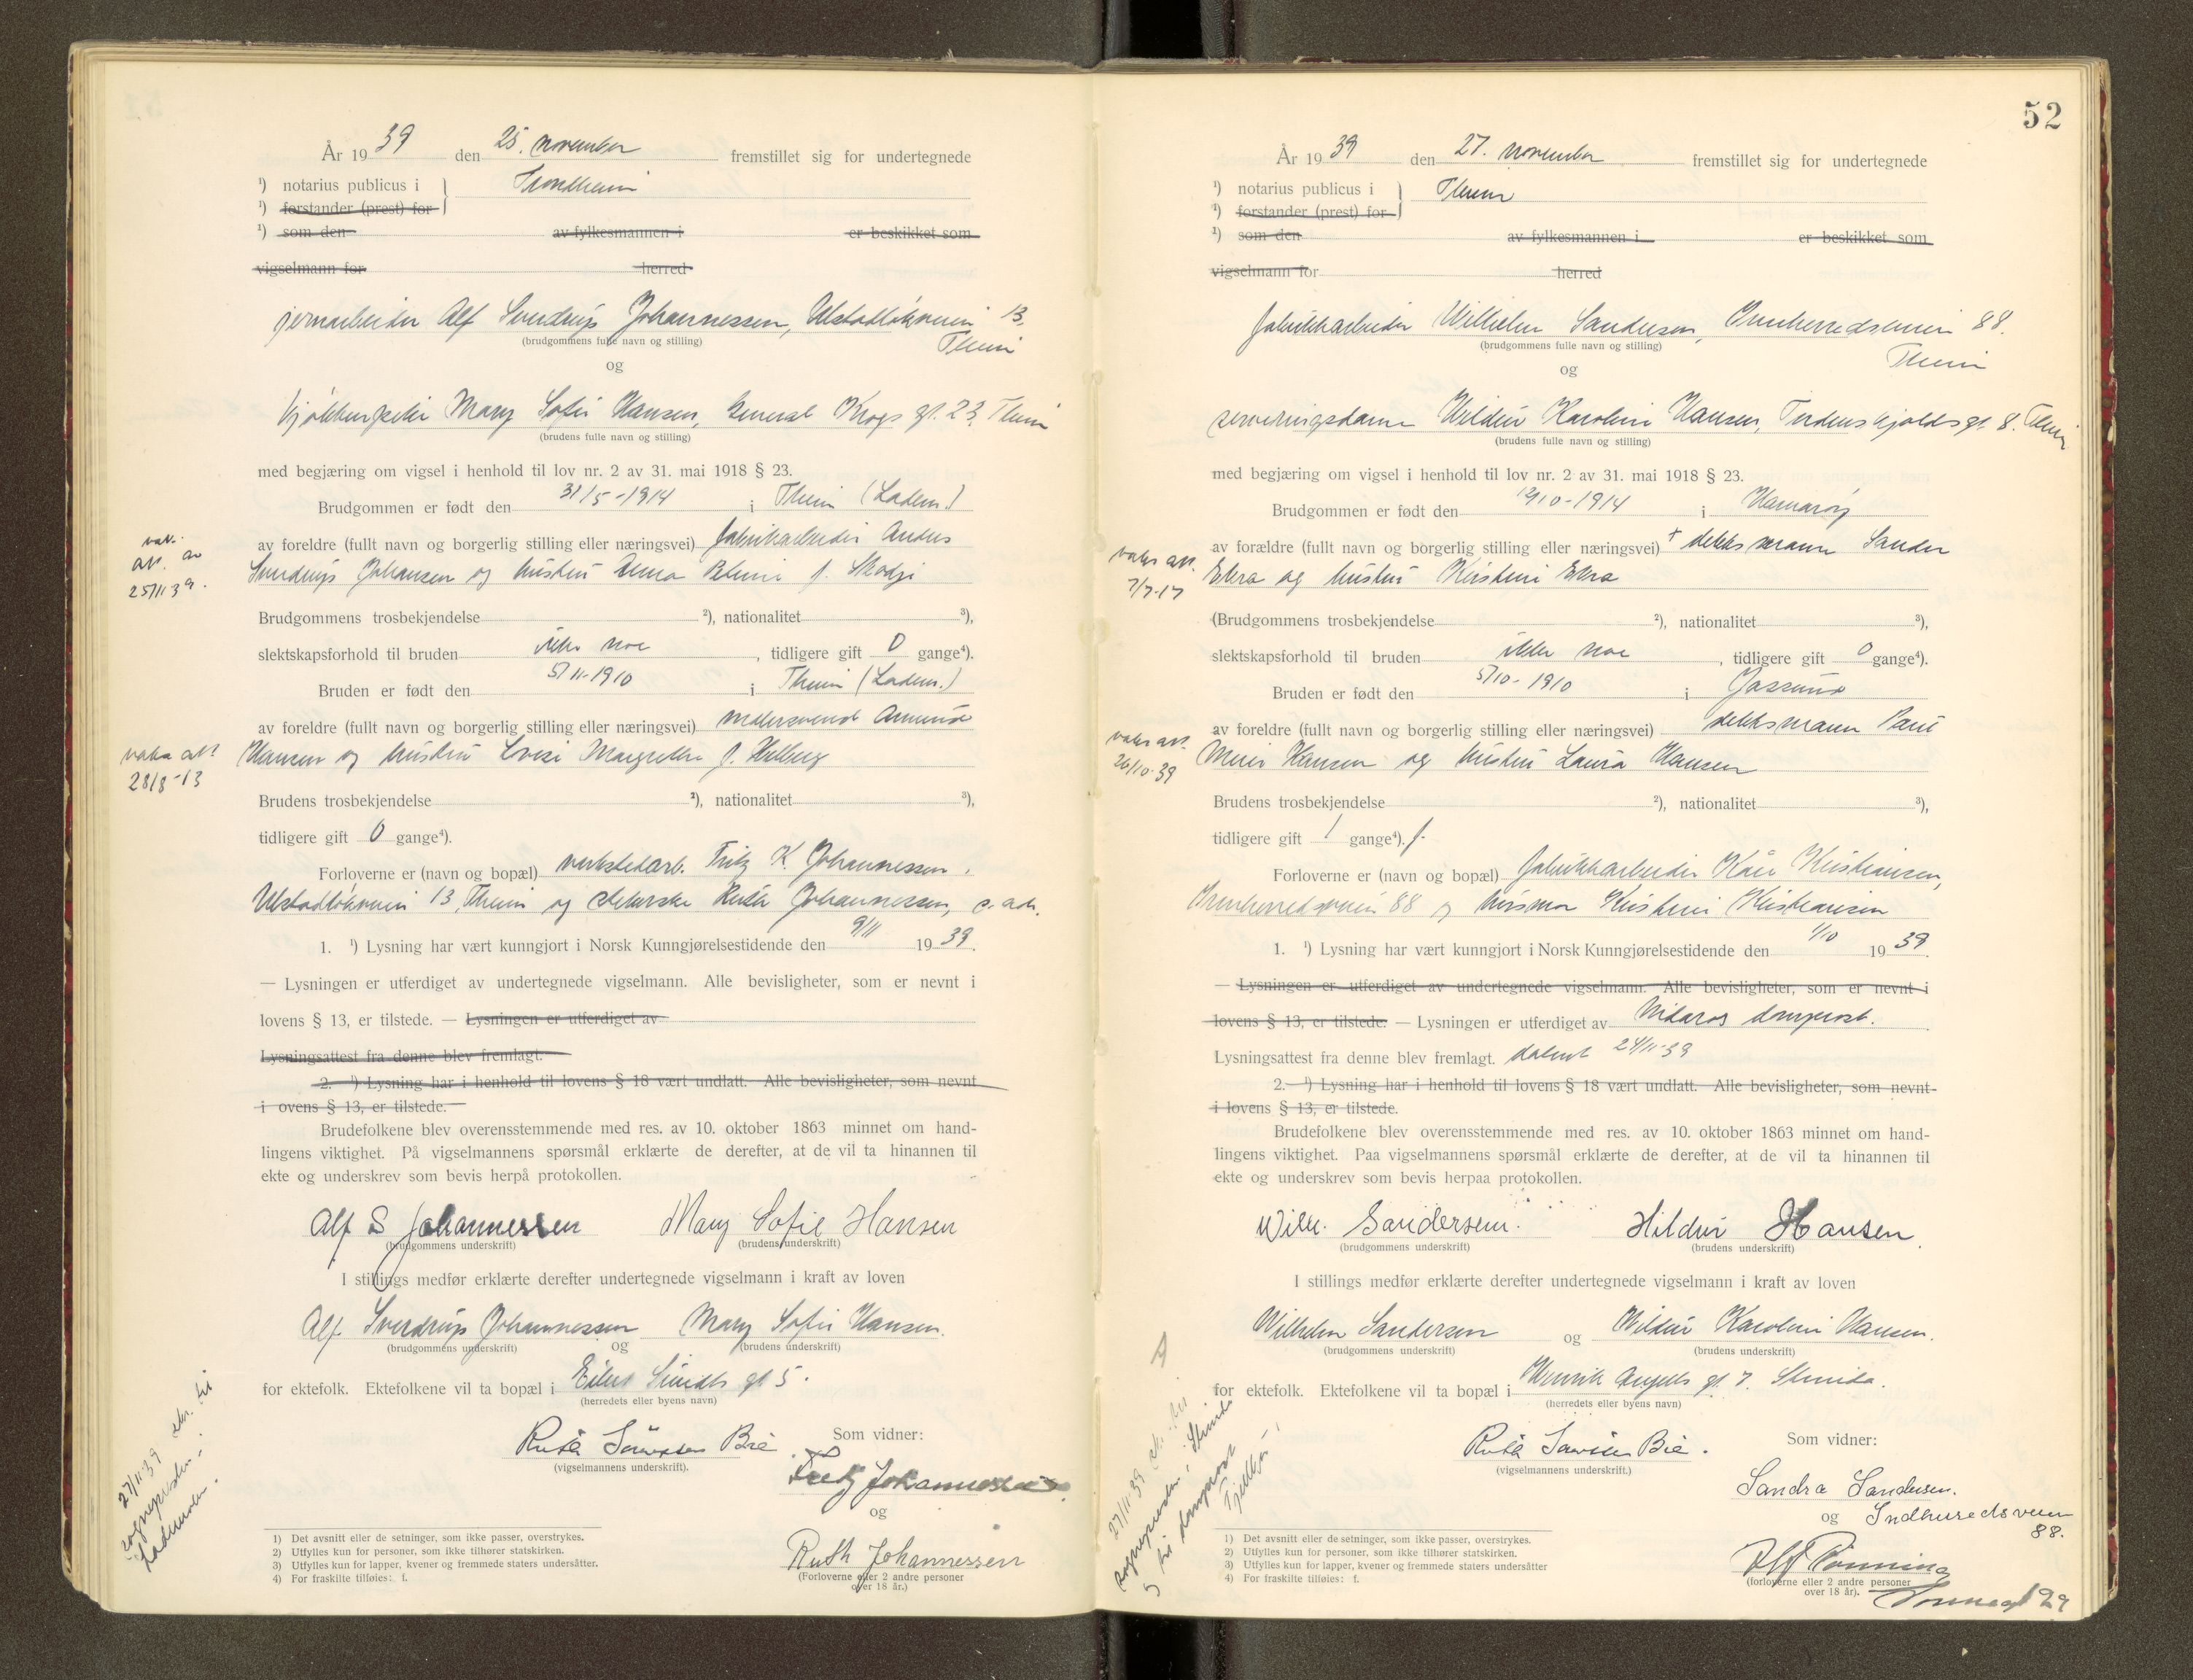 År 19 39 den 25. november fremstillet sig for undertegnede
¹) notarius publicus i Trondheim
¹) forstander (prest) for
¹) som den av fylkesmannen i er beskikket som
vigselmann for herred
jernarbeider Alf Sverdrup Johannessen, Ulstadløkveien 13,
(brudgommens fulle navn og stilling)
Theim
og
kjøkkenpike Mary Sofie Hansen, General Krogs gt. 23, Theim
(brudens fulle navn og stilling)
med begjæring om vigsel i henhold til lov nr. 2 av 31. mai 1918 § 23.
Brudgommen er født den 31/5-1914 i Theim (Ladem.)
av foreldre (fullt navn og borgerlig stilling eller næringsvei) fabrikkarbeider Anders
Sverdrup Johansen og hustru Anna Petrine f. Skodje
vak.
att. av
25/11 39.
Brudgommens trosbekjendelse ²), nationalitet ³),
slektskapsforhold til bruden ikke noe, tidligere gift 0 gange⁴).
Bruden er født den 5/11-1910 i Theim (Ladem.)
av foreldre (fullt navn og borgerlig stilling eller næringsvei) malersvend Amund
Hansen og hustru Lovise Margrethe f.
28/8-13
Brudens trosbekjendelse ²), nationalitet ³),
tidligere gift 0 gange⁴).
Forloverne er (navn og bopæl) verkstedarb. Fritz K. Johannessen,
Ulstadløkveien 13, Theim og Ruth Johannessen, s. adr.
1. ¹) Lysning har vært kunngjort i Norsk Kunngjørelsestidende den 9/11 19 39.
— Lysningen er utferdiget av undertegnede vigselmann. Alle bevisligheter, som er nevnt i
lovens § 13, er tilstede. — Lysningen er utferdiget av
Lysningsattest fra denne blev fremlagt.
2. ¹) Lysning har i henhold til lovens § 18 vært undlatt. Alle bevisligheter, som nevnt
i ovens § 13, er tilstede.
Brudefolkene blev overensstemmende med res. av 10. oktober 1863 minnet om hand-
lingens viktighet. På vigselmannens spørsmål erklærte de derefter, at de vil ta hinannen til
ekte og underskrev som bevis herpå protokollen.
Alf S Johannessen Mary Sofie Hansen
(brudgommens underskrift) (brudens underskrift)
I stillings medfør erklærte derefter undertegnede vigselmann i kraft av loven
Alf Sverdrup Johannessen Mary Sofie Hansen.
(brudgommens underskrift) og (brudens underskrift)
for ektefolk. Ektefolkene vil ta bopæl i Eilert Sundts gt 5.
(herredets eller byens navn)
Ruth Bie
(vigselmannens underskrift).
Som vidner:
Fritz Johannessen
og
Ruth Johannessen
(Forloverne eller 2 andre personer
over 18 år.)
27/11-39 skr. til
sognepresten i
Lademoen.
1) Det avsnitt eller de setninger, som ikke passer, overstrykes.
2) Utfylles kun for personer, som ikke tilhører statskirken.
3) Utfylles kun for lapper, kvener og fremmede staters undersåtter.
4) For fraskilte tilføies: f.
52
År 19 39 den 27. november fremstillet sig for undertegnede
¹) notarius publicus i Theim
¹) forstander (prest) for
¹) som den av fylkesmannen i er beskikket som
vigselmann for herred
fabrikkarbeider Wilhelm Sandersen, Innherredsveien 88.
(brudgommens fulle navn og stilling)
Theim
og
serveringsdame Hildur Karoline Hansen, Tordenskjoldsgt. 8. Theim
(brudens fulle navn og stilling)
med begjæring om vigsel i henhold til lov nr. 2 av 31. mai 1918 § 23.
Brudgommen er født den /10-1914 i Hamarøy
av forældre (fullt navn og borgerlig stilling eller næringsvei) + dekksmann Sander
og hustru Kristine
7/7-17
(Brudgommens trosbekjendelse ²), nationalitet ³),
slektskapsforhold til bruden ikke noe, tidligere gift 0 gange⁴).
Bruden er født den 5/10-1910 i Jøssund
av foreldre (fullt navn og borgerlig stilling eller næringsvei) dekksmann Paul
Meier Hansen og hustru Laura Hansen
26/10-39
Brudens trosbekjendelse ²), nationalitet ³),
tidligere gift 1 gange⁴). f.
Forloverne er (navn og bopæl) fabrikkarbeider Kåre Kristiansen,
Innherredsveien 88 og husmor Kristine Kristiansen
1. ¹) Lysning har vært kunngjort i Norsk Kunngjørelsestidende den 1/10 19 39.
— Lysningen er utferdiget av undertegnede vigselmann. Alle bevisligheter, som er nevnt i
lovens § 13, er tilstede. — Lysningen er utferdiget av Nidaros domprost.
Lysningsattest fra denne blev fremlagt. datert 24/11-39
2. ¹) Lysning har i henhold til lovens § 18 vært undlatt. Alle bevisligheter, som nevnt
i lovens § 13, er tilstede.
Brudefolkene blev overensstemmende med res. av 10. oktober 1863 minnet om hand-
lingens viktighet. Paa vigselmannens spørsmål erklærte de derefter, at de vil ta hinannen til
ekte og underskrev som bevis herpaa protokollen.
Wilh. Sandersen. Hildur Hansen.
(brudgommens underskrift) (brudens underskrift)
I stillings medfør erklærte derefter undertegnede vigselmann i kraft av loven
Wilhelm Sandersen og Hildur Karoline Hansen.
(brudgommens underskrift) (brudens underskrift)
for ektefolk. Ektefolkene vil ta bopæl i Henrik Angells gt. 7. Strinda.
(herredets eller byens navn)
Ruth Bie.
(vigselmannens underskrift)
Som vidner:
Sandra Sandersen.
og Indherredsveien
88.
Alf Rønning
(forloverne eller 2 andre personer
over 18 år).
27/11-39 skr. til
sognepresten i Strinda
og til domprost
Fjellbu
1) Det avsnitt eller de setninger, som ikke passer, overstrykes.
2) Utfylles kun for personer, som ikke tilhører statskirken.
3) Utfylles kun for lapper, kvener og fremmede staters undersåtter
4) For fraskilte tilføies: f.